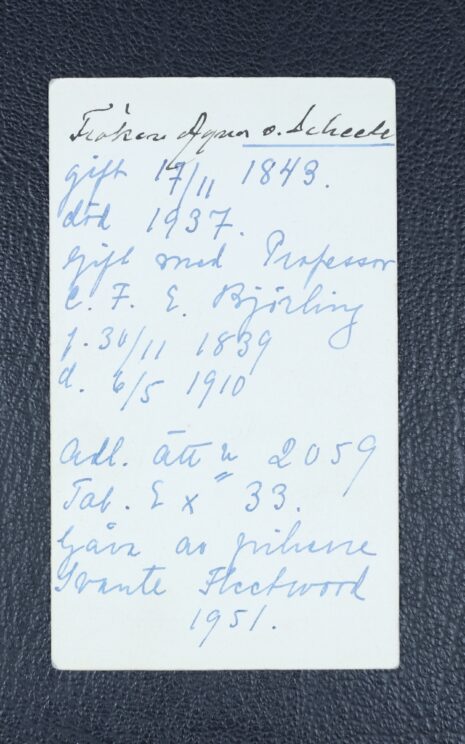 Fröken Agnes v. Scheele
gift 17/11 1843.
död 1937.
Gift med Professor
C. F. E. Björling
f. 30/11 1839
d. 6/5 1910
Adl. ätt n 2059
Tab. E x " 33.
Gåva av friherre
Svante Fleetwood
1951.